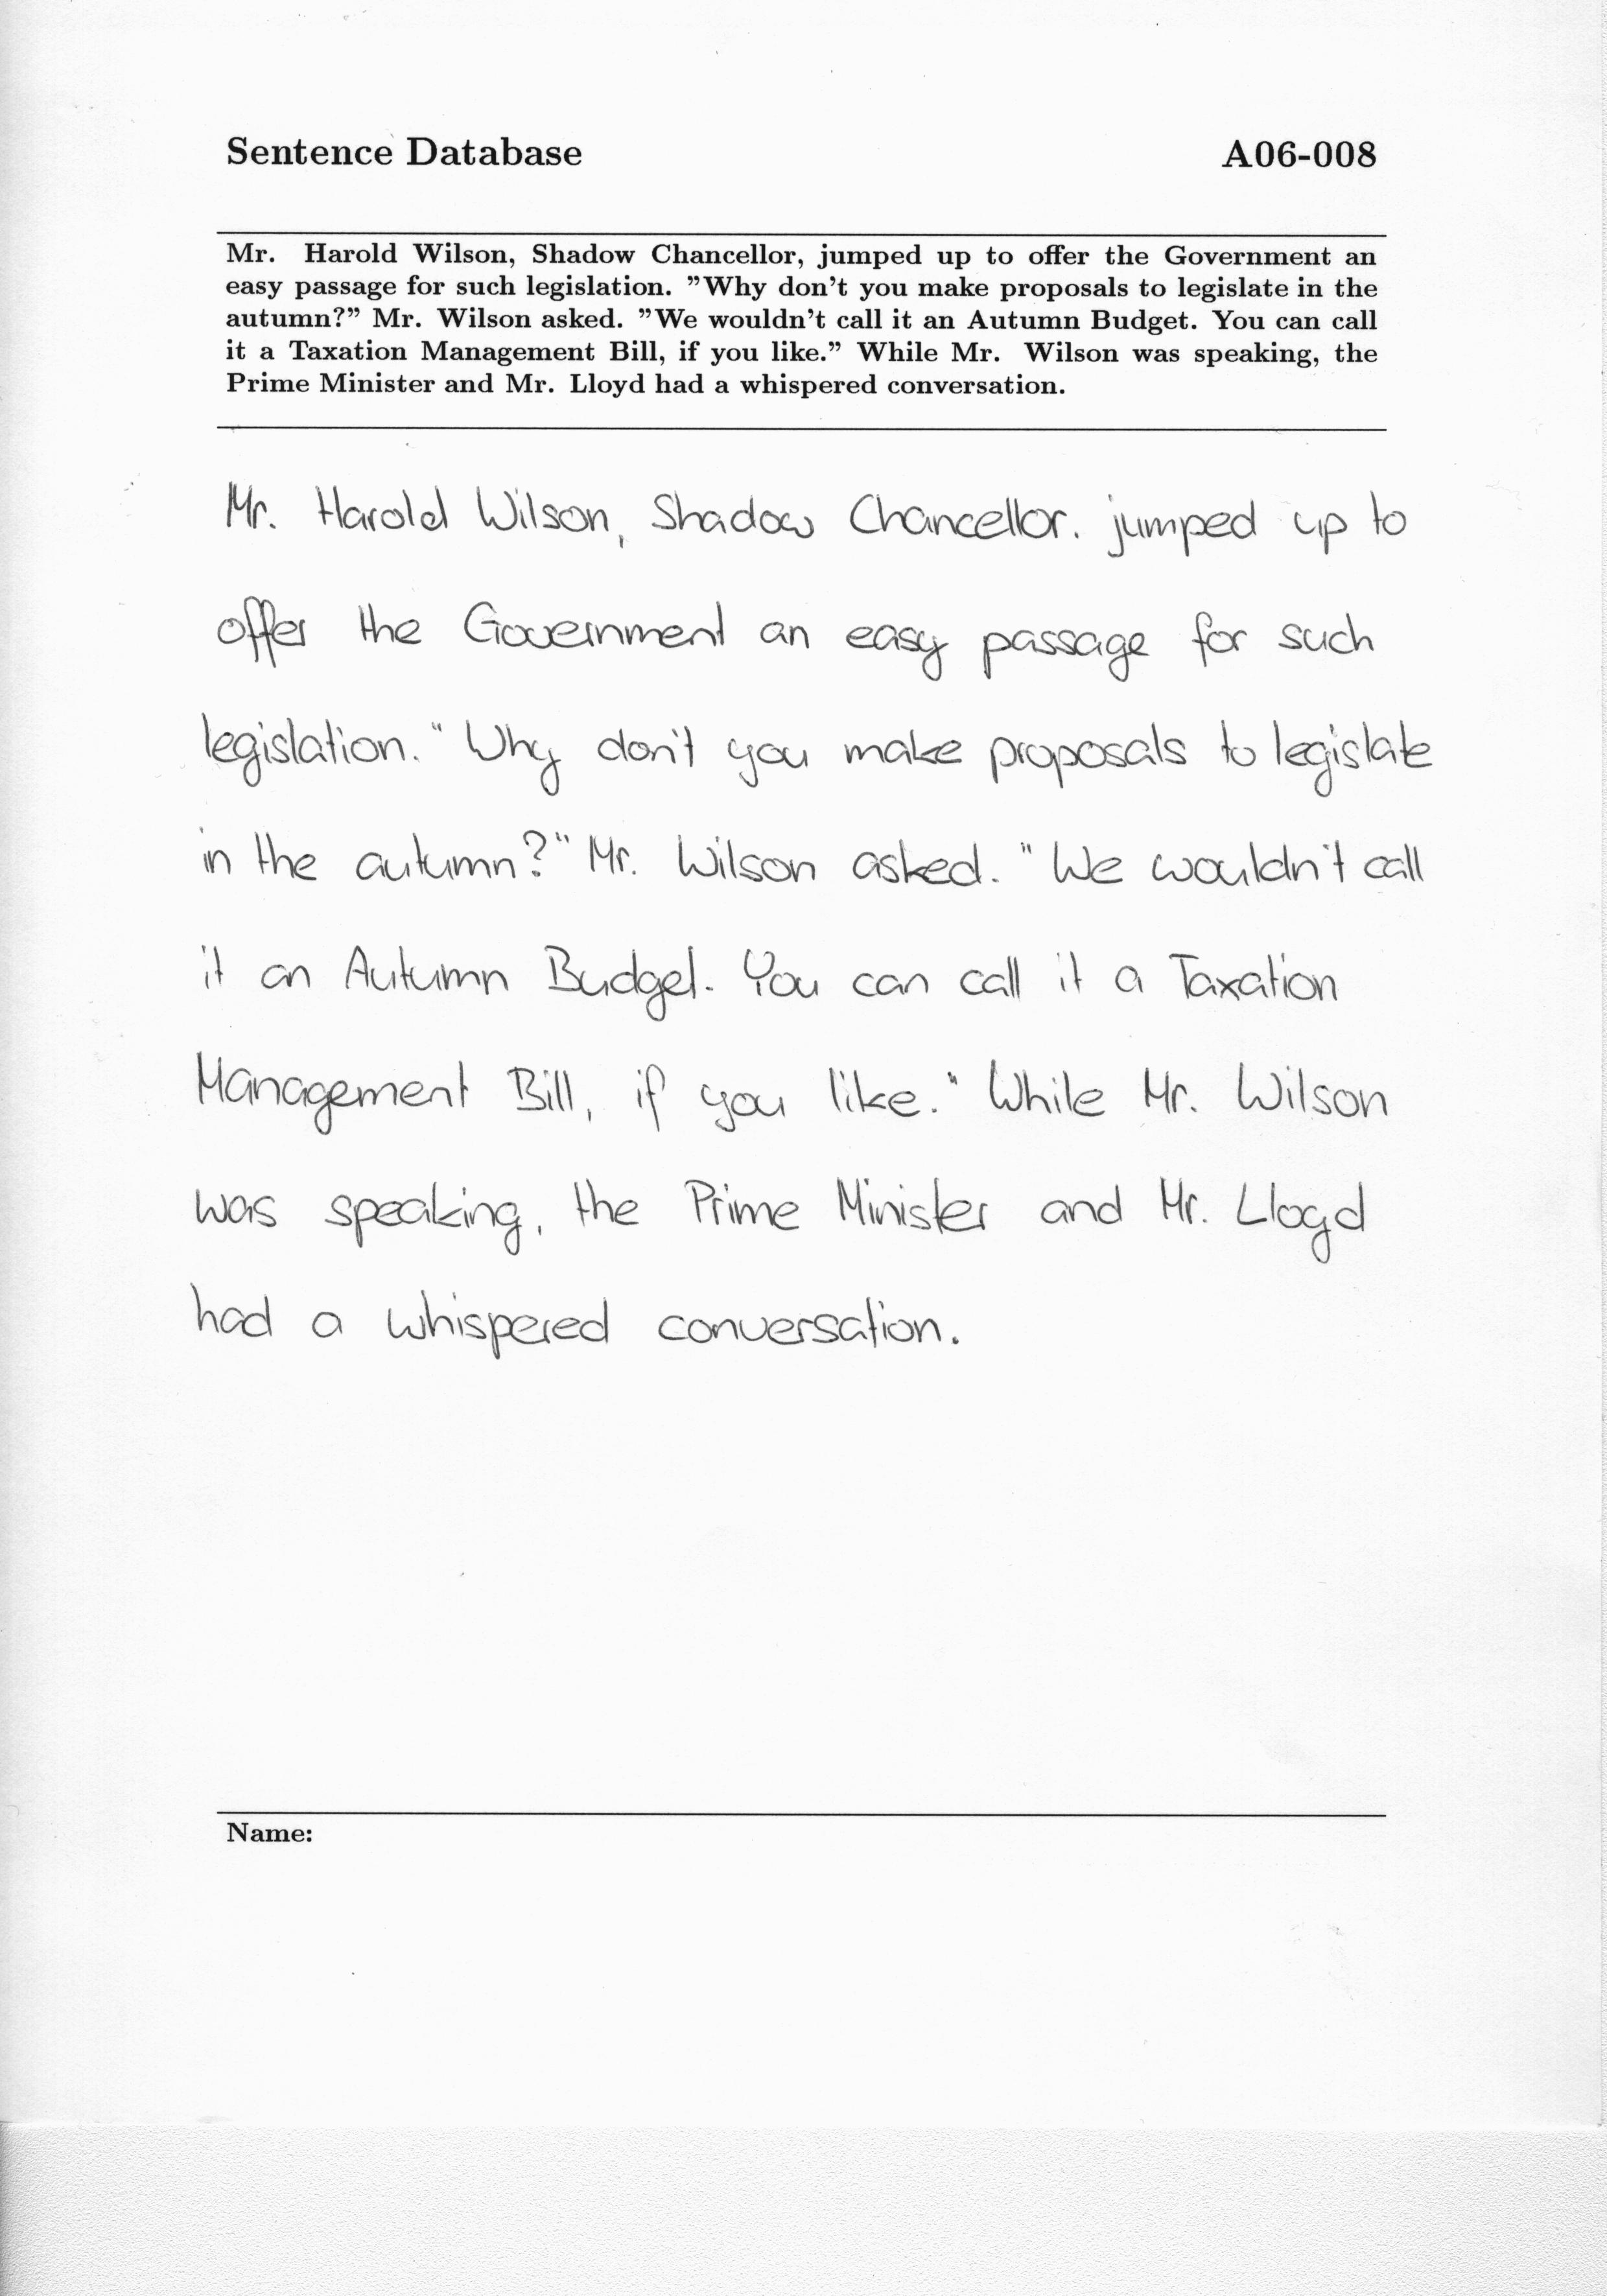 Sentence Database A06-008
Mr. Harold Wilson, Shadow Chancellor, jumped up to offer the Government an
easy passage for such legislation. ”Why don’t you make proposals to legislate in the
autumn?” Mr. Wilson asked. ”We wouldn’t call it an Autumn Budget. You can call
it a Taxation Management Bill, if you like.” While Mr. Wilson was speaking, the
Prime Minister and Mr. Lloyd had a whispered conversation.
Mr. Harold Wilson, Shadow Chancellor. jumped up to
offer the Government an easy passage for such
legislation. "Why don't you make proposals to legislate
in the autumn?" Mr. Wilson asked. "We wouldn't call
it an Autumn Budget. You can call it a Taxation
Management Bill, if you like." While Mr. Wilson
was speaking, the Prime Minister and Mr. Lloyd
had a whispered conversation.
Name: